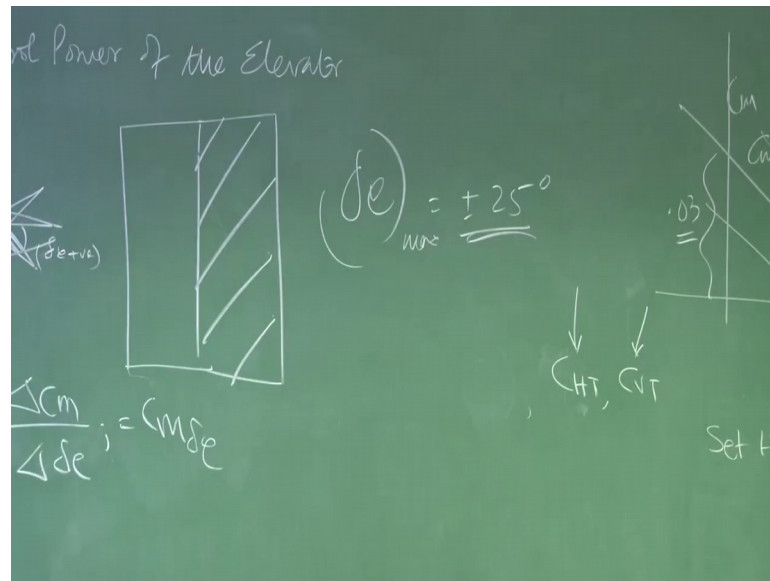 rol Power of the Elevator
(δe+ve)
(δe)max = ± 25°
ΔCm / Δδe ; = Cmδe
Cm
.03
CHT, CVT
Set